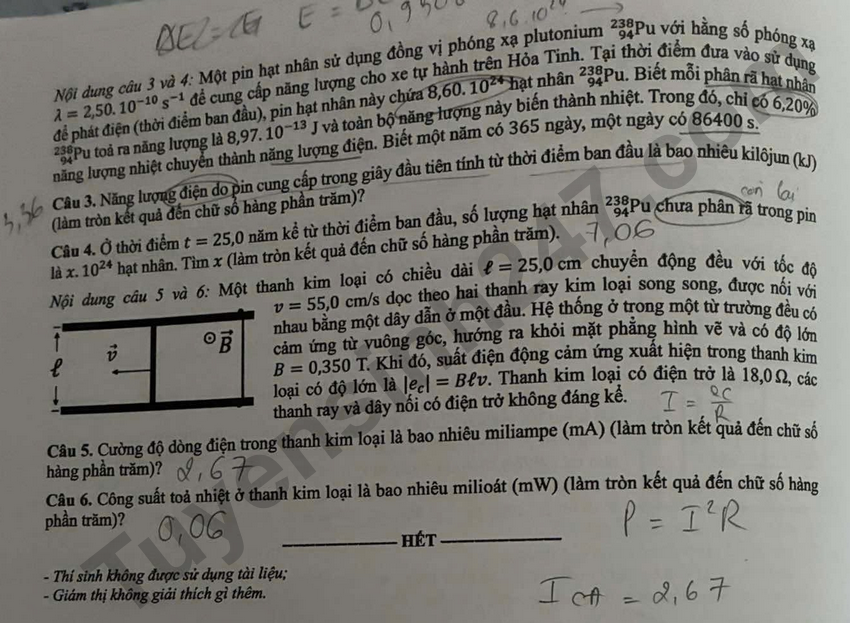 E =
8,6.10²⁴
Nội dung câu 3 và 4: Một pin hạt nhân sử dụng đồng vị phóng xạ plutonium ²³⁸₉₄Pu với hằng số phóng xạ
λ = 2,50.10⁻¹⁰ s⁻¹ để cung cấp năng lượng cho xe tự hành trên Hỏa Tinh. Tại thời điểm đưa vào sử dụng
để phát điện (thời điểm ban đầu), pin hạt nhân này chứa 8,60.10²⁴ hạt nhân ²³⁸₉₄Pu. Biết mỗi phân rã hạt nhân
²³⁸₉₄Pu toả ra năng lượng là 8,97.10⁻¹³ J và toàn bộ năng lượng này biến thành nhiệt. Trong đó, chỉ có 6,20%
năng lượng nhiệt chuyển thành năng lượng điện. Biết một năm có 365 ngày, một ngày có 86400 s.
Câu 3. Năng lượng điện do pin cung cấp trong giây đầu tiên tính từ thời điểm ban đầu là bao nhiêu kilôjun (kJ)
3,36
(làm tròn kết quả đến chữ số hàng phần trăm)?
còn lại
Câu 4. Ở thời điểm t = 25,0 năm kể từ thời điểm ban đầu, số lượng hạt nhân ²³⁸₉₄Pu chưa phân rã trong pin
là x.10²⁴ hạt nhân. Tìm x (làm tròn kết quả đến chữ số hàng phần trăm). 7,06
Nội dung câu 5 và 6: Một thanh kim loại có chiều dài ℓ = 25,0 cm chuyển động đều với tốc độ
v = 55,0 cm/s dọc theo hai thanh ray kim loại song song, được nối với
nhau bằng một dây dẫn ở một đầu. Hệ thống ở trong một từ trường đều có
cảm ứng từ vuông góc, hướng ra khỏi mặt phẳng hình vẽ và có độ lớn
B = 0,350 T. Khi đó, suất điện động cảm ứng xuất hiện trong thanh kim
loại có độ lớn là |e_c| = Bℓv. Thanh kim loại có điện trở là 18,0 Ω, các
thanh ray và dây nối có điện trở không đáng kể.
ℓ
v⃗
B⃗
I = ec/R
Câu 5. Cường độ dòng điện trong thanh kim loại là bao nhiêu miliampe (mA) (làm tròn kết quả đến chữ số
hàng phần trăm)? 2,67
Câu 6. Công suất toả nhiệt ở thanh kim loại là bao nhiêu milioát (mW) (làm tròn kết quả đến chữ số hàng
phần trăm)?
0,06
P = I²R
HẾT
- Thí sinh không được sử dụng tài liệu;
- Giám thị không giải thích gì thêm.
I CA = 2,67
Tuyensinh247.com